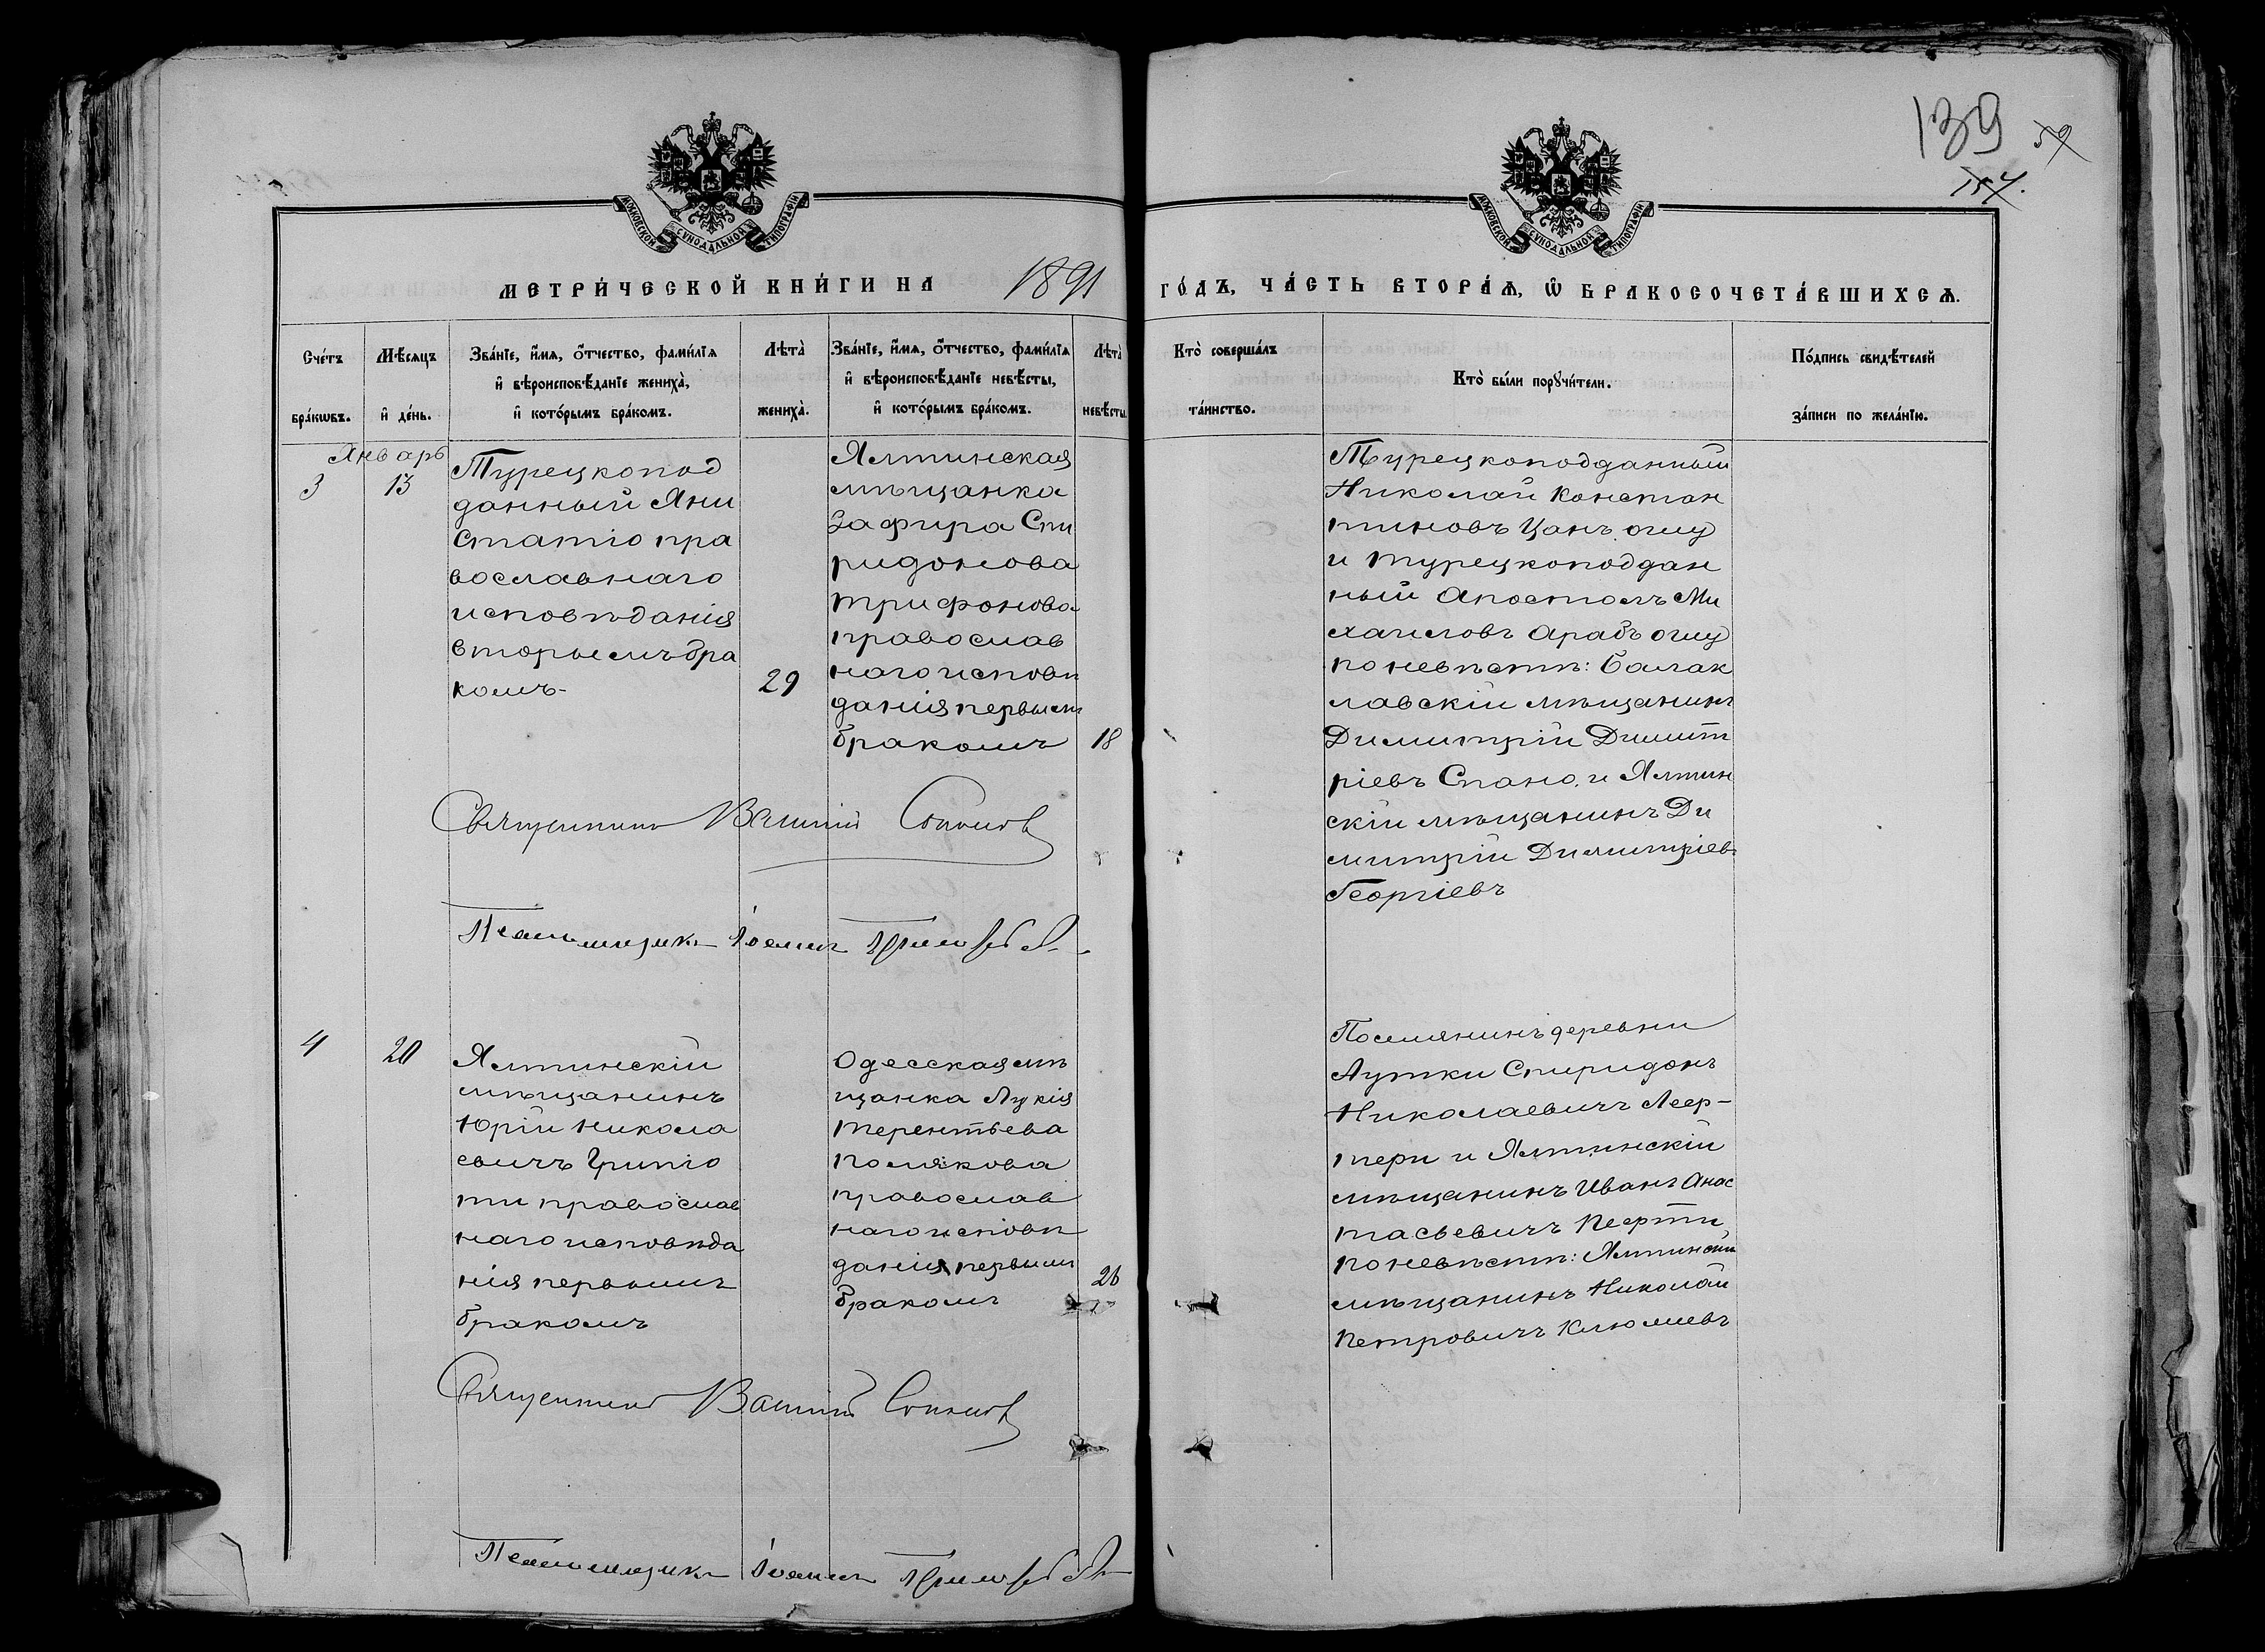 139 59
154.
МОСКОВСКОЙ СѴНОДАЛЬНОЙ ТИПОГРАФІИ
МОСКОВСКОЙ СѴНОДАЛЬНОЙ ТИПОГРАФІИ
МЕТРИ́ЧЕСКОЙ КНИ́ГИ НА 1891 ГО́ДЪ, ЧА́СТЬ ВТОРА́Ѧ, Ѿ БРАКОСОЧЕТА́ВШИХСѦ.
Сче́тъ
бра́кѡвъ.
Мѣ́сяцъ
и де́нь.
Зва́нїе, и́мя, о́тчество, фами́лїя
и вѣроисповѣ́данїе жениха̀,
и кото́рымъ бра́комъ.
Лѣта̀
жениха̀.
Зва́нїе, и́мя, о́тчество, фами́лїя
и вѣроисповѣ́данїе невѣ́сты,
и кото́рымъ бра́комъ.
Лѣта̀
невѣ́сты.
Кто̀ соверша́лъ
та́инство.
Кто̀ бы́ли порꙋчи́тели.
По́дпись свидѣ́телей
за́писи по жела́нїю.
Январь
3
13
Турецкопод
данный Яни
Статіо пра
вославнаго
исповѣданія
вторымъ бра
комъ-
29
Ялтинская
мѣщанка
Зафира Спи
ридонова
Трифонова
православ
наго исповѣ
данія первымъ
бракомъ
18
Турецкоподданный
Николай Констан
тиновъ Цанъ оглу
и турецкоподдан
ный Апостолъ Ми
хаиловъ Арабъ оглу
по невѣстѣ: Балак
лавскій мѣщанинъ
Димитрій Димит
ріевъ Спано. и Ялтин
скій мѣщанинъ Ди
митрій Димитріевъ
Георгіевъ
Священникъ Василій
Псаломщикъ Іоаннъ
4
20
Ялтинскій
мѣщанинъ
Юрій Никола
евичъ Грипіо
ти православ
наго исповѣда
нія первымъ
бракомъ
Одесская мѣ
щанка Лукія
Терентьева
Полякова
православ
наго исповѣ
данія первымъ
бракомъ
26
Поселянинъ деревни
Аутки Спиридонъ
Николаевичъ Леер-
тери и Ялтинскій
мѣщанинъ Иванъ Анас
тасьевичъ
по невѣстѣ: Ялтинскій
мѣщанинъ Николай
Петровичъ
Священникъ Василій
Псаломщикъ Іоаннъ